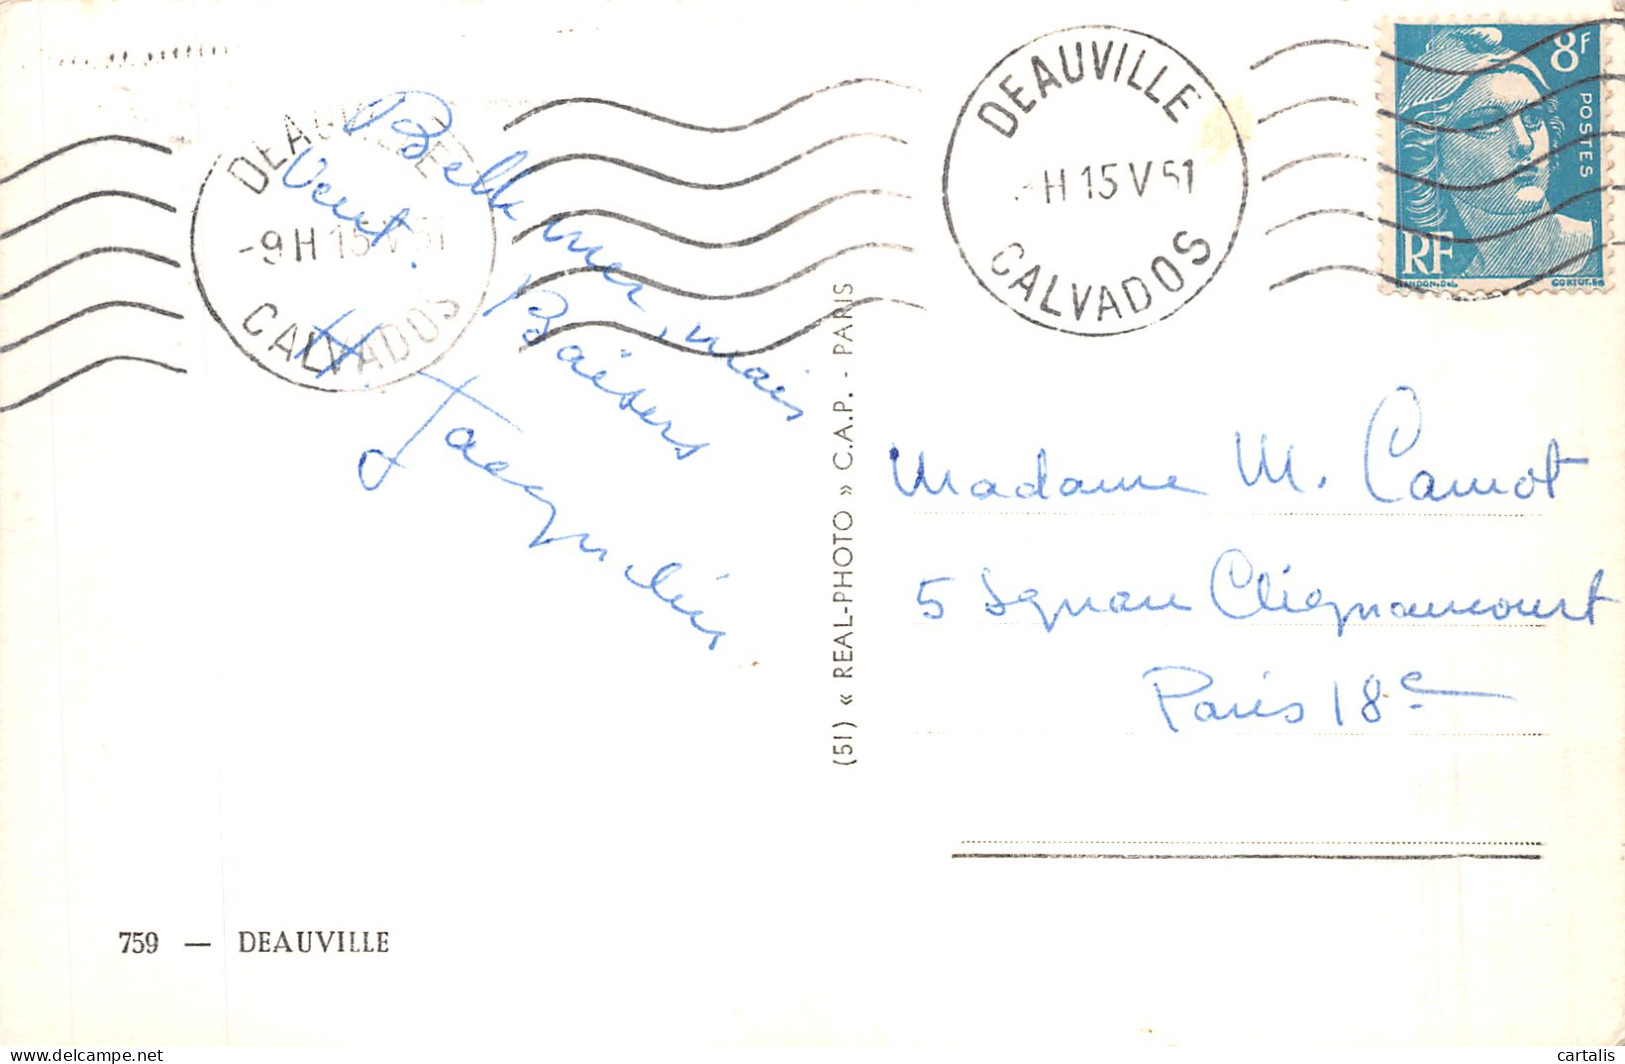 DEAUVILLE
-9H 15 V 51
CALVADOS
DEAUVILLE
-H 15 V 51
CALVADOS
8F
POSTES
RF
GANDON.DEL.
CORTOT.SC
Belle mer, mais
Vent.
Baisers
Jacqueline
(51) « REAL-PHOTO » C.A.P. - PARIS
Madame M. Camot
5 Square Clignancourt
Paris 18e
759 — DEAUVILLE
cartalis